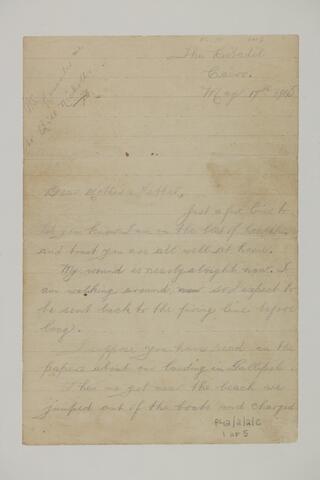 The Citadel
Cairo.
May 17th 1915
Dear Mother & Father,
Just a few lines to
let you know I am in the best of health
and trust you are all well at home.
My wound is nearly alright now. I
am walking around, so I expect to
be sent back to the firing line before
long.
I suppose you have read in the
papers about our landing in Gallipoli.
When we got near the beach we
jumped out of the boats and charged
1 of 5